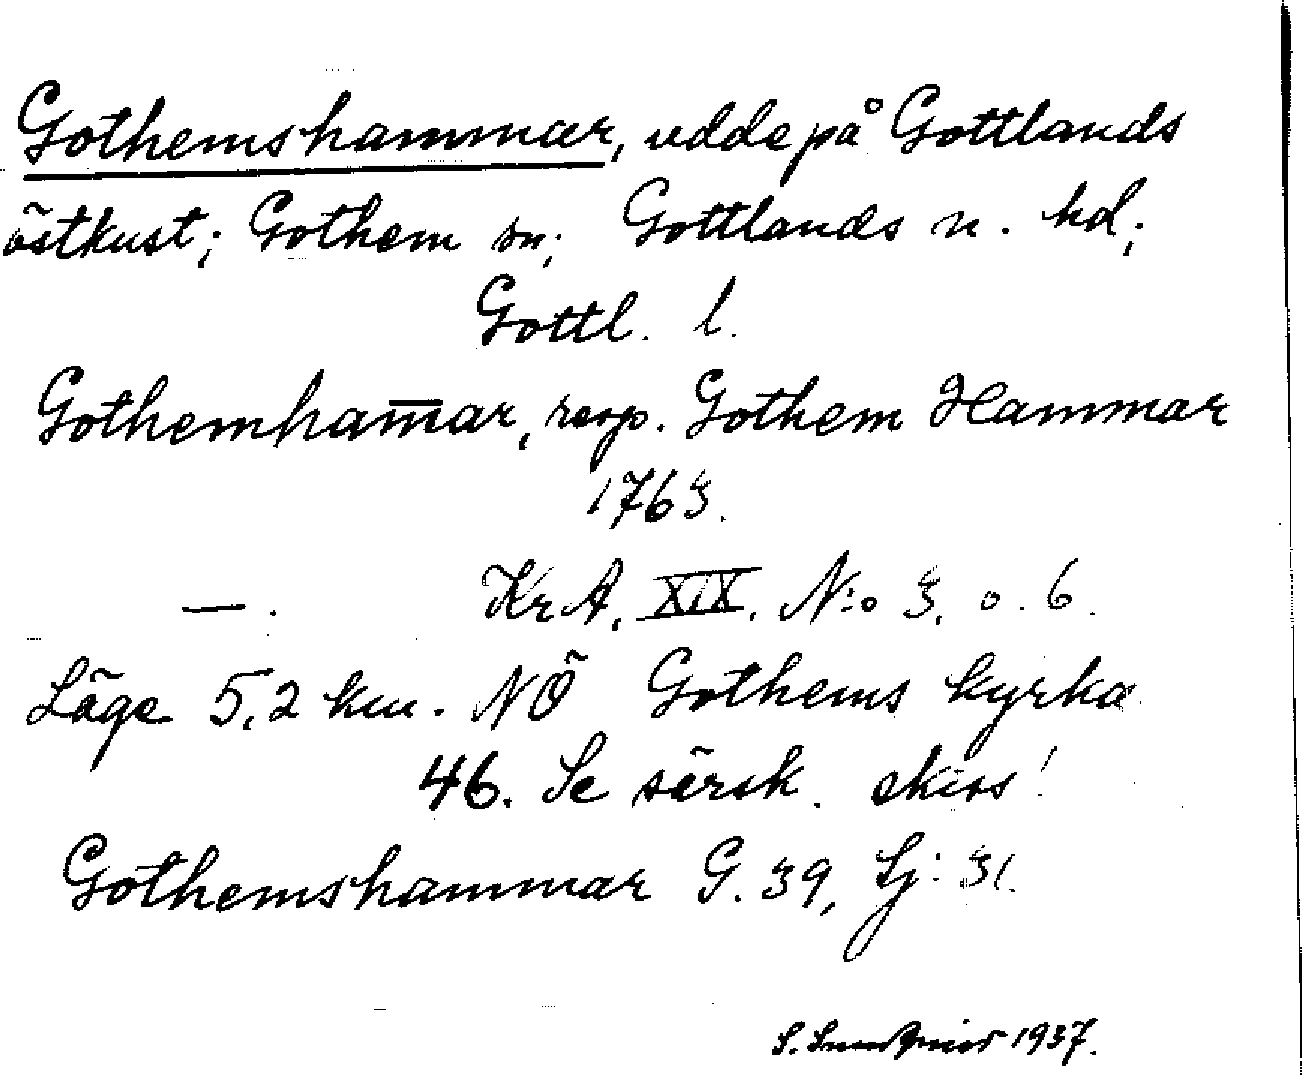 Gothemshammar, udde på Gottlands
östkust; Gothem sn; Gottlands n. hd;
Gottl. l.
Gothemham̅ar, resp. Gothem Hammar
1763.
—. KrA. XIX. N:o 3. o. 6.
Läge 5,2 km. NÖ Gothems kyrka
46. Se särsk. skiss!
Gothemshammar G. 39, Lj: 31.
S. 1937.